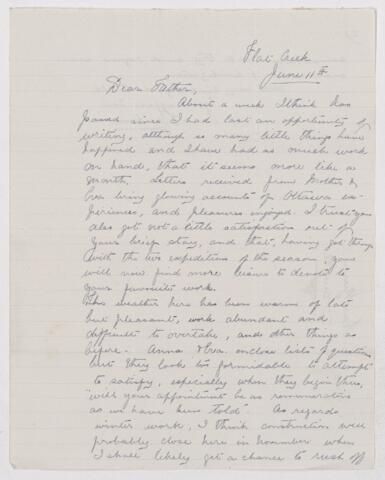 Flat Creek
June 11th
Dear Father,
About a week I think has
passed since I had last an opportunity of
writing, although so many little things have
happened and I have had so much work
on hand, that it seems more like a
month. Letters received from Mother &
Eva bring glowing accounts of Ottawa ex-
periences, and pleasures enjoyed. I trust you
also got not a little satisfaction out of
your brief stay, and that, having got through
with the two expeditions of the season, you
will now find more leisure to devote to
your favourite work.
The weather here has been warm of late
but pleasant, work abundant and
difficult to overtake, and other things as
before. Anna & Eva enclose lists of questions
but they look too formidable to attempt
to satisfy, especially when they begin thus,
"will your appointment be as remunerative
as we have been told" As regards
winter work, I think construction will
probably close here in November when
I shall likely get a chance to rush off